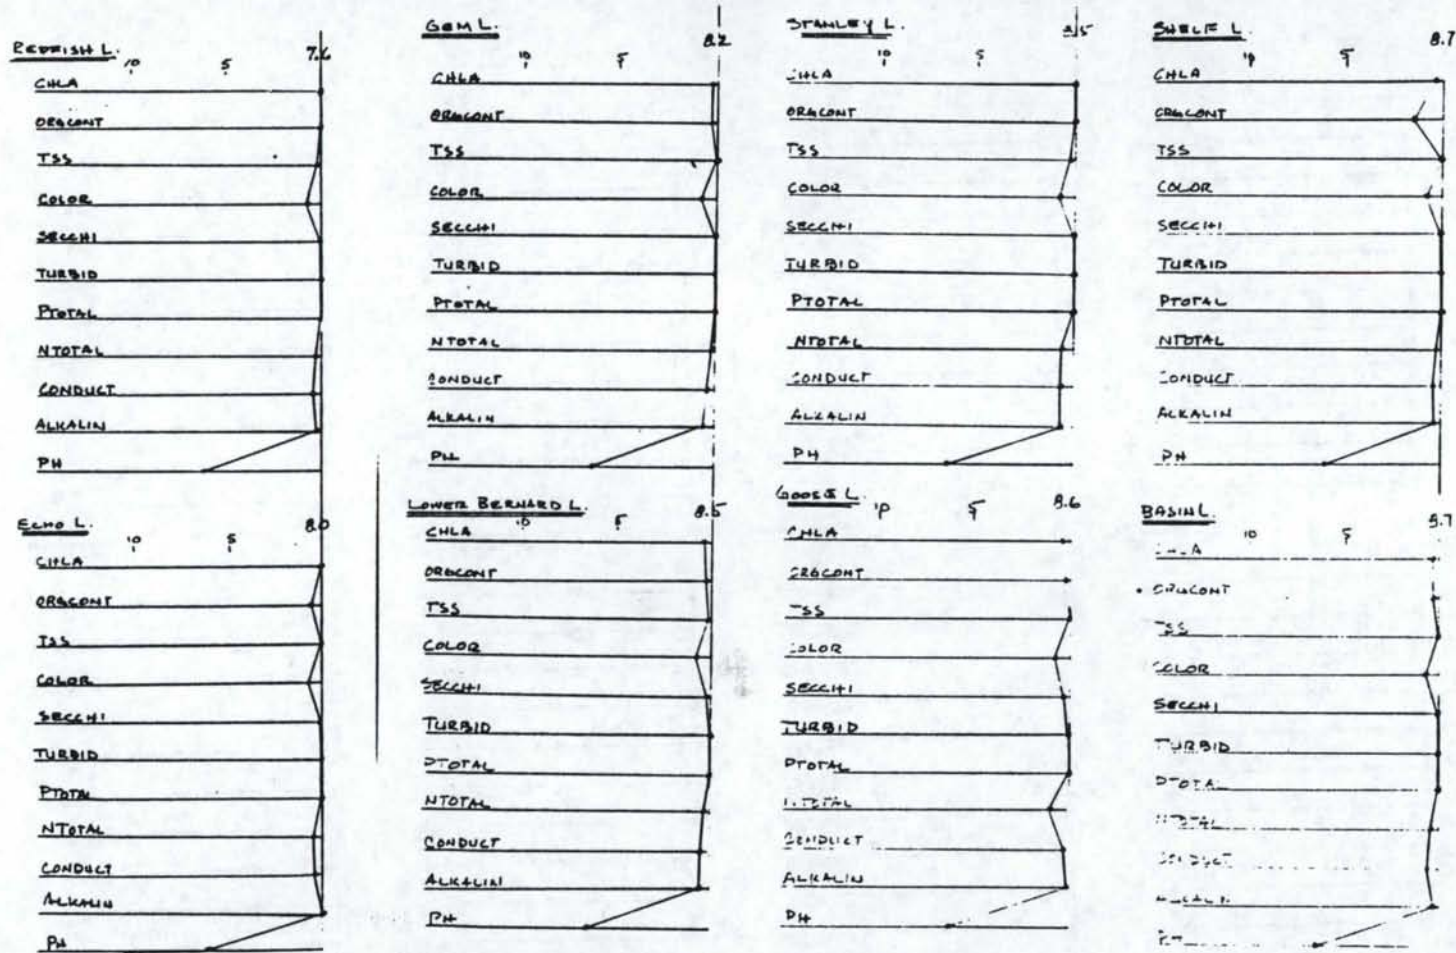 REDFISH L.
10 5 7.6
CHLA
ORGCONT
TSS
COLOR
SECCHI
TURBID
PTOTAL
NTOTAL
CONDUCT
ALKALIN
PH
GEM L.
10 5 8.2
CHLA
ORGCONT
TSS
COLOR
SECCHI
TURBID
PTOTAL
NTOTAL
CONDUCT
ALKALIN
PH
STANLEY L.
10 5
CHLA
ORGCONT
TSS
COLOR
SECCHI
TURBID
PTOTAL
NTOTAL
CONDUCT
ALKALIN
PH
SHELF L.
10 5 8.7
CHLA
ORGCONT
TSS
COLOR
SECCHI
TURBID
PTOTAL
NTOTAL
CONDUCT
ALKALIN
PH
ECHO L.
10 5 8.0
CHLA
ORGCONT
TSS
COLOR
SECCHI
TURBID
PTOTAL
NTOTAL
CONDUCT
ALKALIN
PH
LOWER BERNARD L.
10 5 8.5
CHLA
ORGCONT
TSS
COLOR
SECCHI
TURBID
PTOTAL
NTOTAL
CONDUCT
ALKALIN
PH
GOOSE L.
10 5 8.6
CHLA
ORGCONT
TSS
COLOR
SECCHI
TURBID
PTOTAL
NTOTAL
CONDUCT
ALKALIN
PH
BASIN L.
10 5
CHLA
ORGCONT
TSS
COLOR
SECCHI
TURBID
PTOTAL
NTOTAL
CONDUCT
ALKALIN